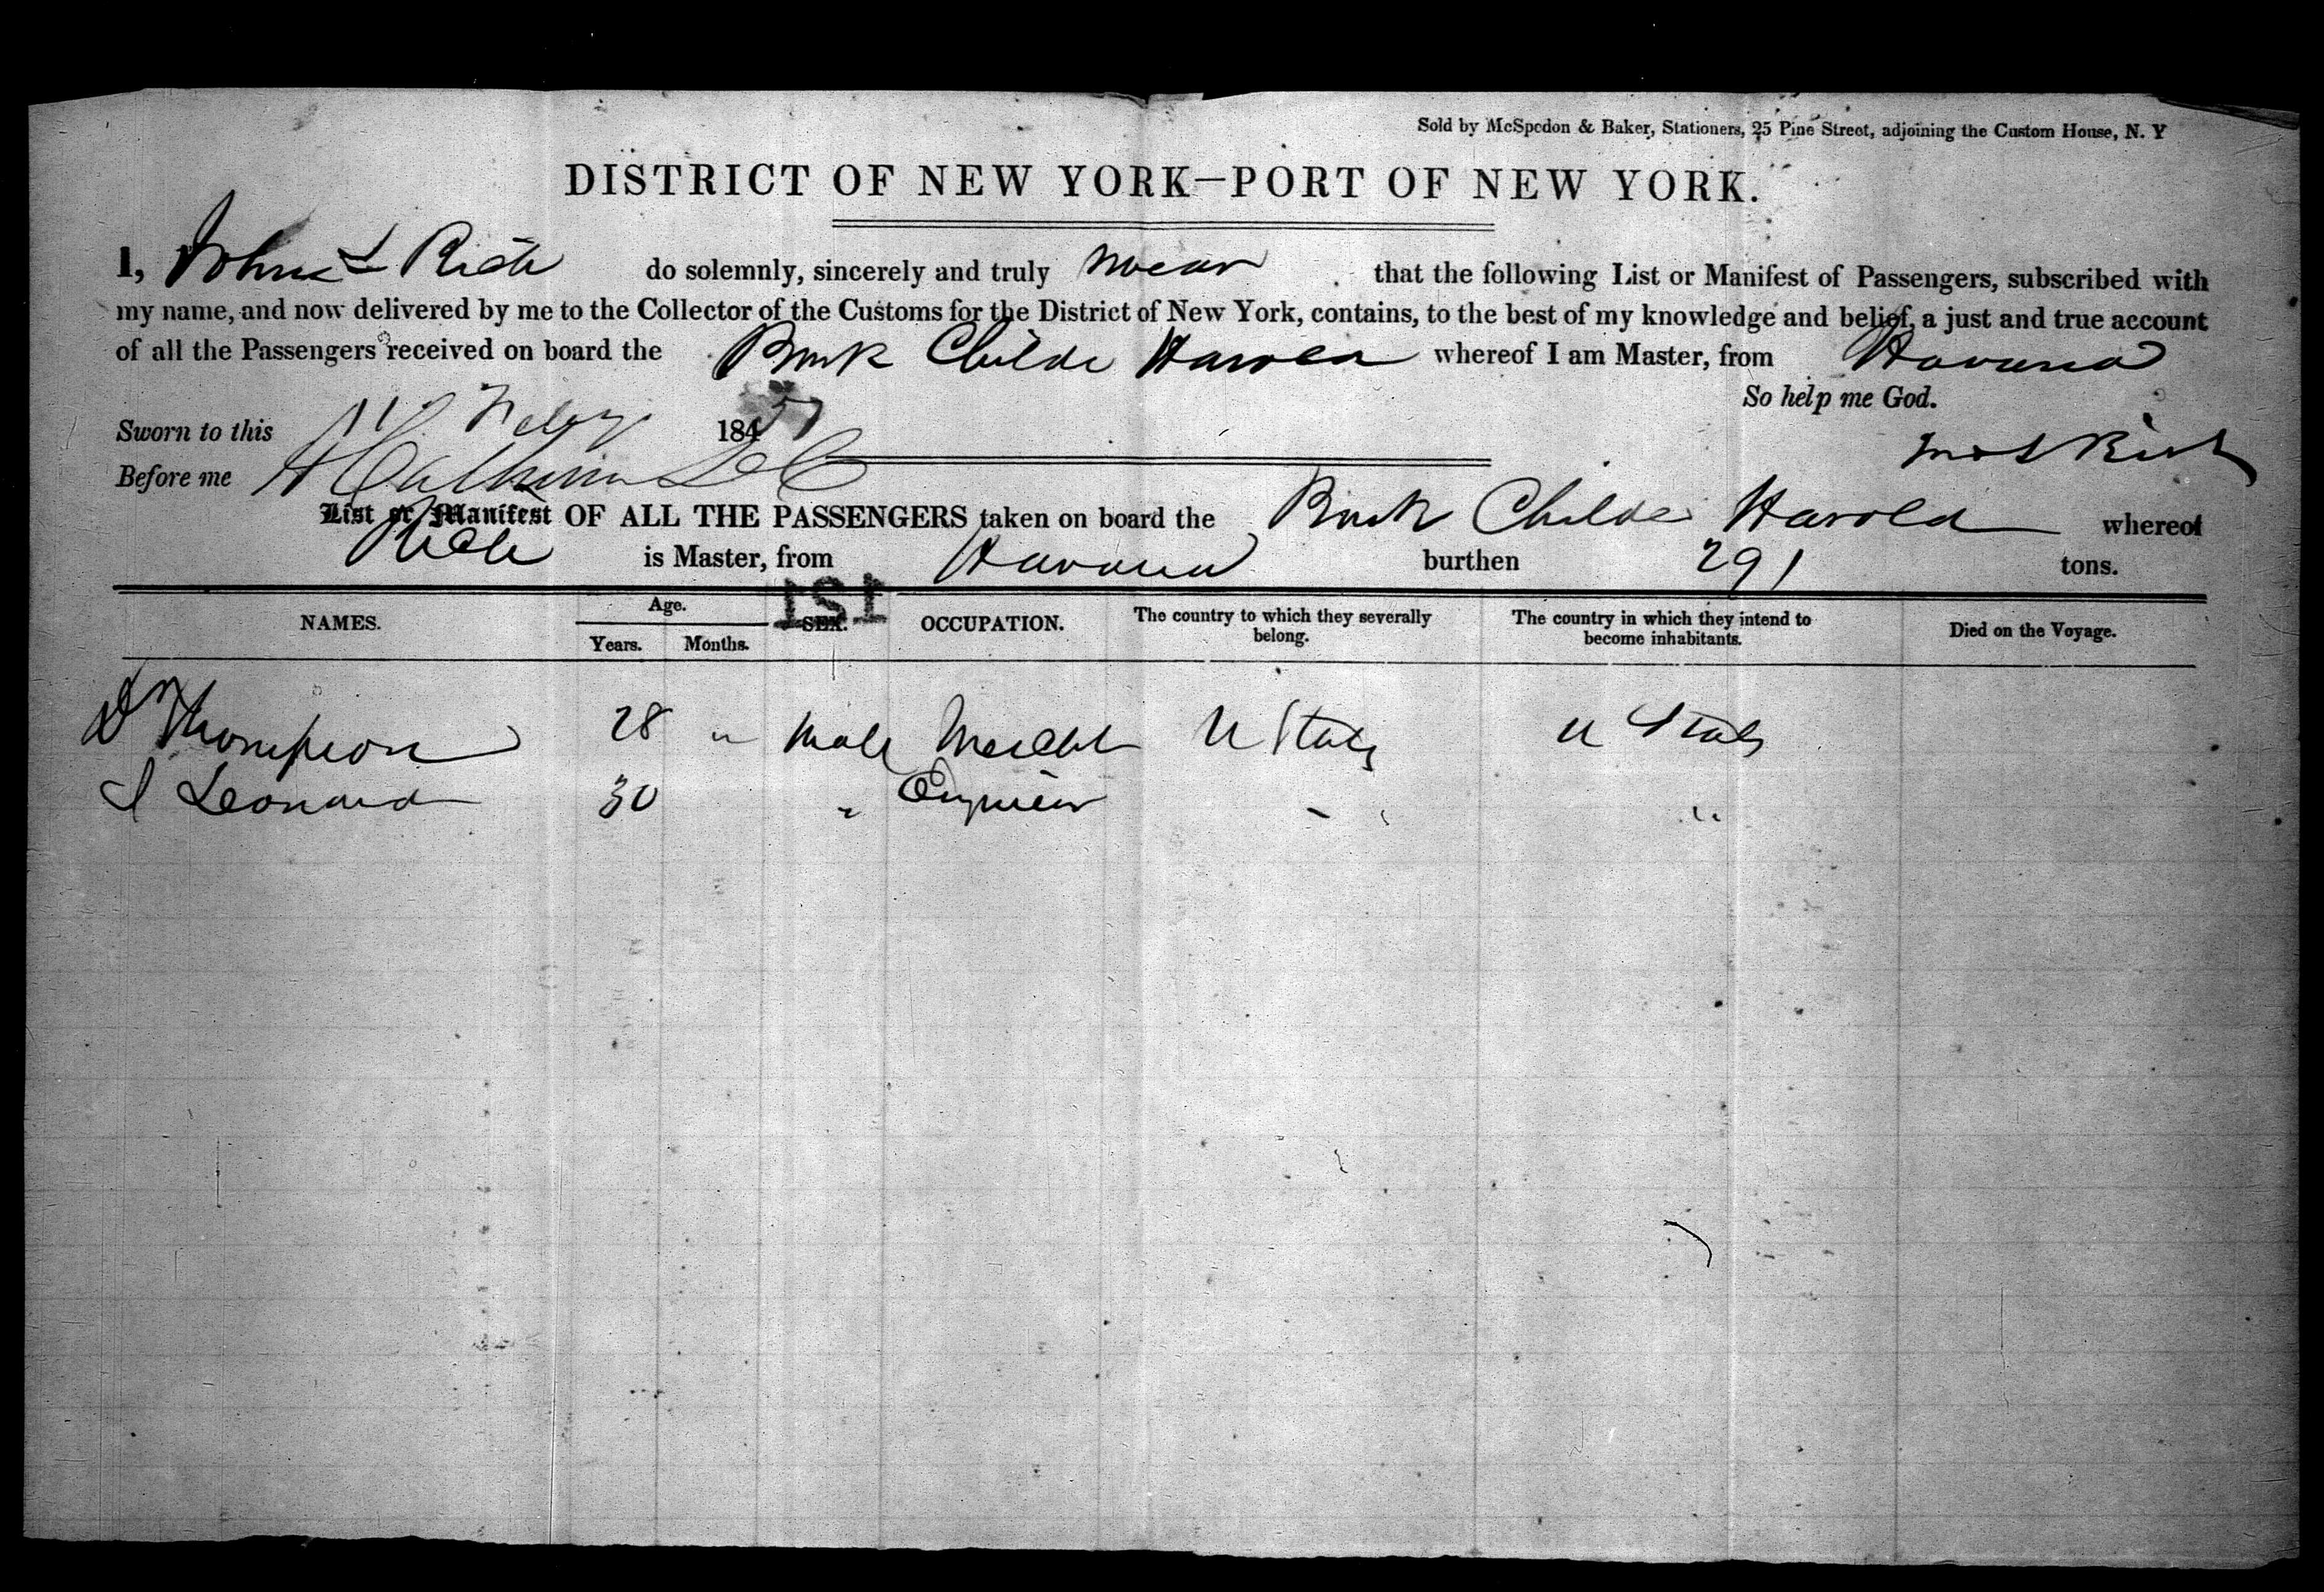 Sold by McSpedon & Baker, Stationers, 25 Pine Street, adjoining the Custom House, N. Y
DISTRICT OF NEW YORK—PORT OF NEW YORK.
I, John L Rich do solemnly, sincerely and truly swear that the following List or Manifest of Passengers, subscribed with
my name, and now delivered by me to the Collector of the Customs for the District of New York, contains, to the best of my knowledge and belief, a just and true account
of all the Passengers received on board the Bark Childe Harold whereof I am Master, from Havana
So help me God.
Sworn to this 11 Feby 184
Before me
List or Manifest OF ALL THE PASSENGERS taken on board the Bark Childe Harold whereof
Rich is Master, from Havana burthen 291 tons.
121
NAMES. Age. Years. Months. SEX. OCCUPATION. The country to which they severally belong. The country in which they intend to become inhabitants. Died on the Voyage.
Thompson 28 " Male Mercht U States U States
Leonard 30 " Engineer " " "